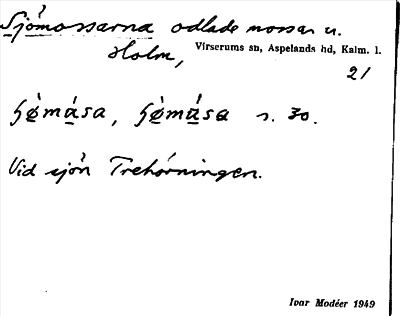 Sjömossarna odlade mossar u.
Holm, Virserums sn, Aspelands hd, Kalm. l.
21
ʃø̀mása, ʃø̀mása s. 30.
Vid sjön Trehörningen.
Ivar Modéer 1949